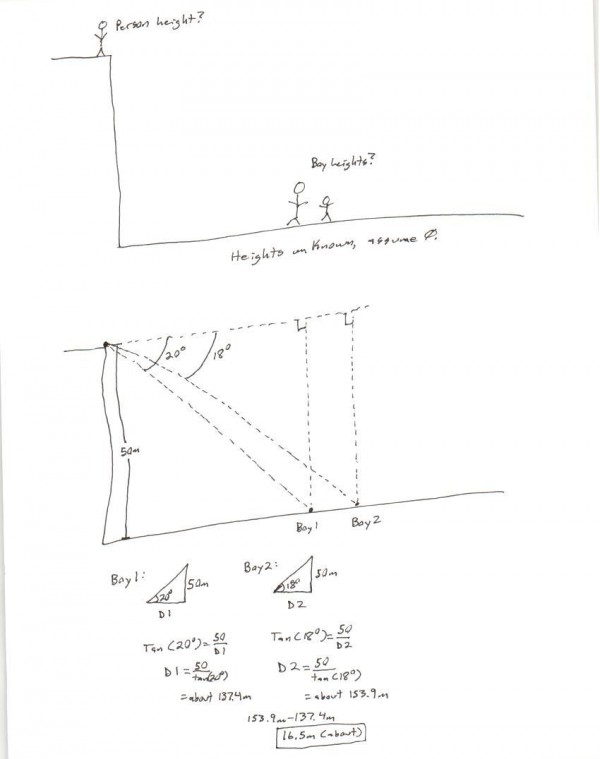 Person height?
Boy heights?
Heights unknown, assume Ø.
20° 18°
50m
Boy 1 Boy 2
Boy 1: Boy 2:
20° 50m 18° 50m
D1 D2
Tan(20°)=50/D1 Tan(18°)=50/D2
D1=50/tan(20°) D2=50/tan(18°)
=about 137.4m =about 153.9m
153.9m-137.4m
16.5m (about)